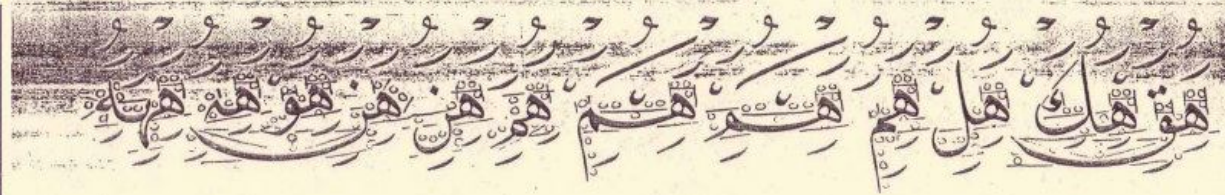 هق هك هل هم هكم هكم هم هن هن هو هه